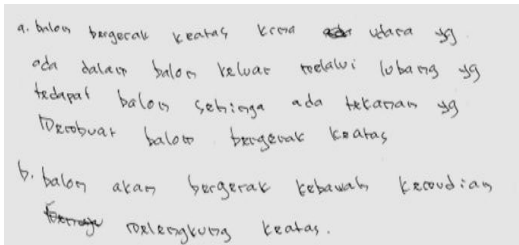 a. balon bergerak keatas krna udara yg
ada dalam balon keluar melalui lubang yg
tedapat balon sehinga ada tekanan yg
membuat balon bergerak keatas
b. balon akan bergerak kebawah kemudian
melengkung keatas.